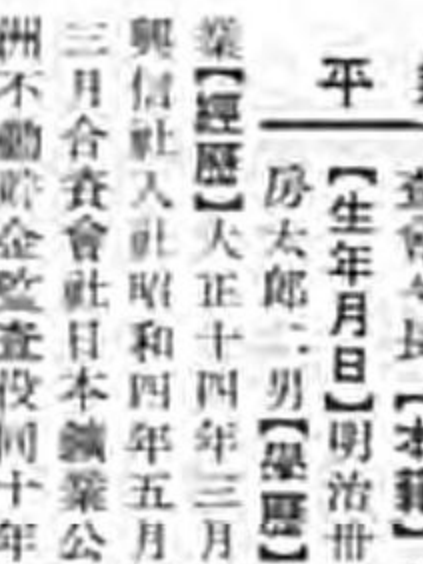 平
查會々長【本籍】
【生年月日】明治卅
房太郎二男【學歷】
業【經歷】大正十四年三月
興信社入社昭和四年五月
三月合資會社日本鑛業公
洲不動貯金監査役同十年